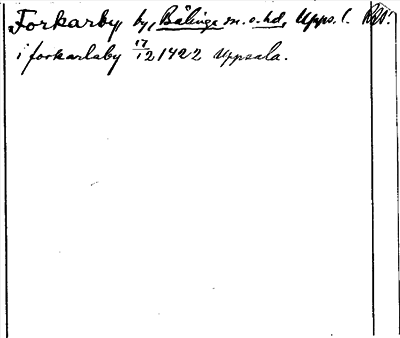 Forkarby by, Bälinge sn. o. hd, Upps. l.
i forkarlaby 17/12 1422 Uppsala.